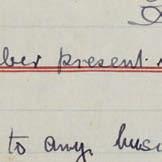 ber present
to any busi